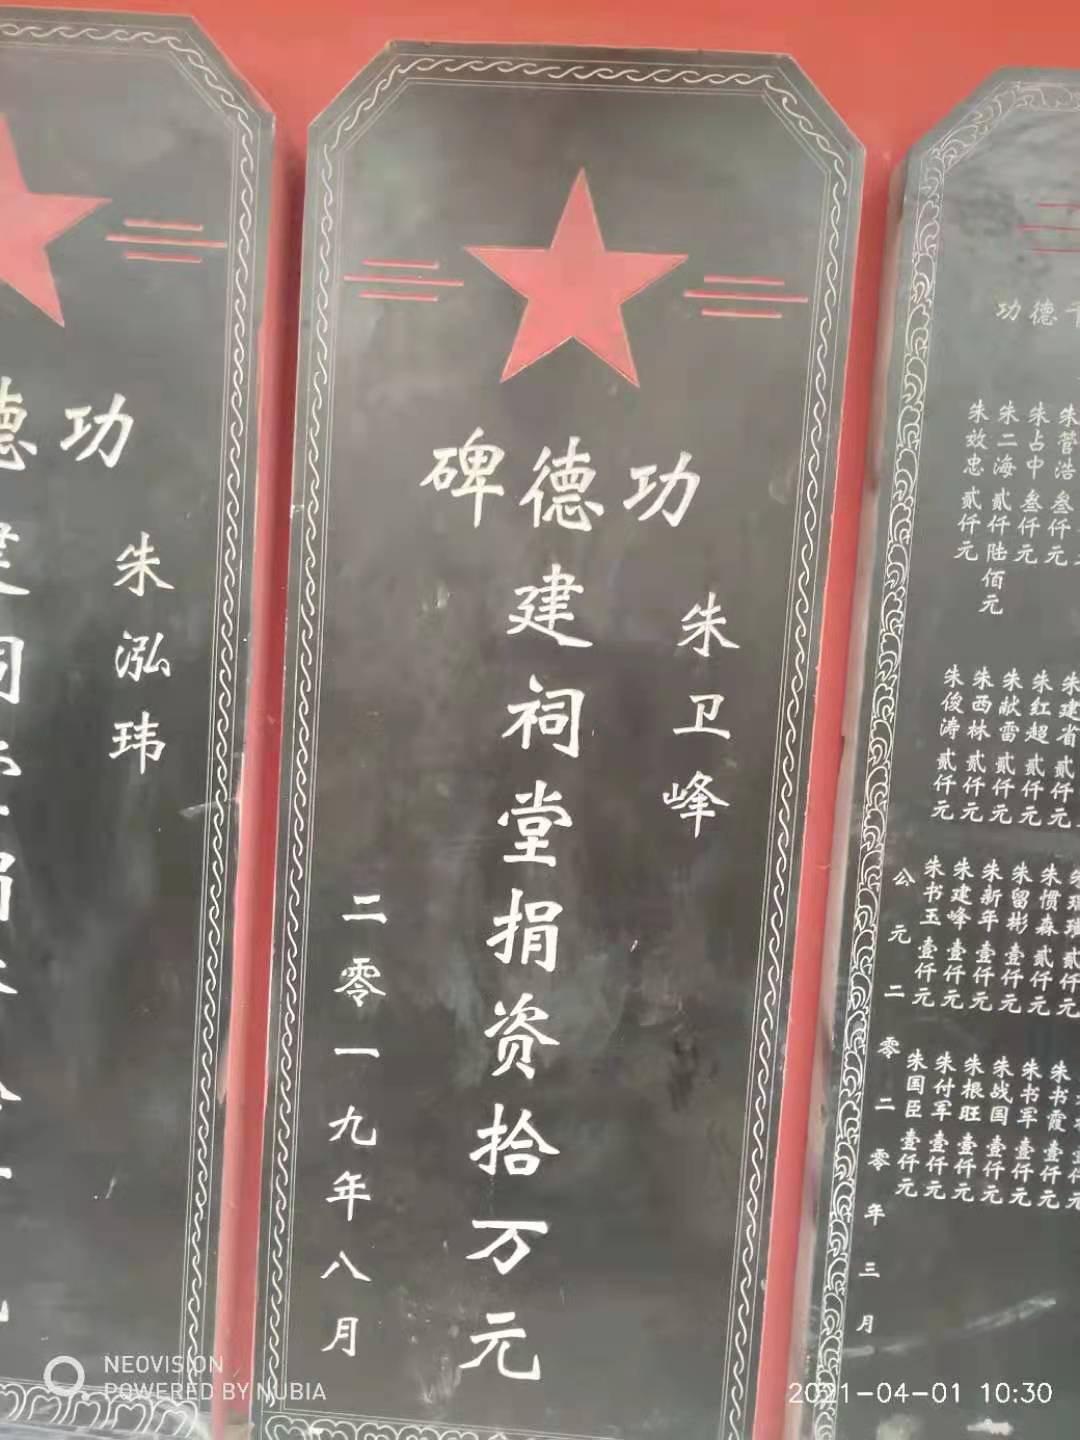 功德
朱泓玮
功德碑
朱卫峰
建祠堂捐资拾万元
二零一九年八月
功德
朱管浩 叁仟元
朱占中 叁仟元
朱二海 贰仟陆佰元
朱效忠 贰仟元
朱建省 贰仟元
朱红超 贰仟元
朱献雷 贰仟元
朱西林 贰仟元
朱俊涛 贰仟元
朱惯森 贰仟元
朱留彬 壹仟元
朱新年 壹仟元
朱建峰 壹仟元
朱书玉 壹仟元
朱书霞 壹仟元
朱书军 壹仟元
朱战国 壹仟元
朱根旺 壹仟元
朱付军 壹仟元
朱国臣 壹仟元
公元二零二零年三月
NEOVISION
POWERED BY NUBIA
2021-04-01 10:30